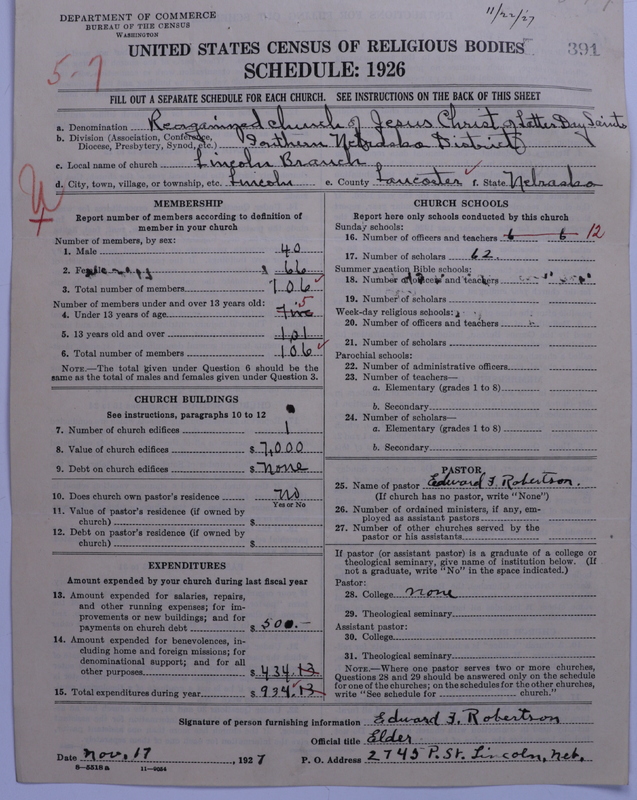 DEPARTMENT OF COMMERCE
BUREAU OF THE CENSUS
WASHINGTON
11/22/27
UNITED STATES CENSUS OF RELIGIOUS BODIES
391
SCHEDULE: 1926
5-7
FILL OUT A SEPARATE SCHEDULE FOR EACH CHURCH. SEE INSTRUCTIONS ON THE BACK OF THIS SHEET
a. Denomination Reorganized Church of Jesus Christ of Latter Day Saints
b. Division (Association, Conference, Diocese, Presbytery, Synod, etc.) Southern Nebraska District
c. Local name of church Lincoln Branch
d. City, town, village, or township, etc. Lincoln e. County Lancaster f. State Nebraska
MEMBERSHIP
Report number of members according to definition of
member in your church
Number of members, by sex:
1. Male 40
2. 66
3. Total number of members 106
Number of members under and over 13 years old:
4. Under 13 years of age five 5
5. 13 years old and over 101
6. Total number of members 106
NOTE.—The total given under Question 6 should be the
same as the total of males and females given under Question 3.
CHURCH BUILDINGS
See instructions, paragraphs 10 to 12
7. Number of church edifices 1
8. Value of church edifices $7,000
9. Debt on church edifices $None
10. Does church own pastor's residence No
Yes or No
11. Value of pastor's residence (if owned by
church) $
12. Debt on pastor's residence (if owned by
church) $
EXPENDITURES
Amount expended by your church during last fiscal year
13. Amount expended for salaries, repairs,
and other running expenses; for im-
provements or new buildings; and for
payments on church debt $500.—
14. Amount expended for benevolences, in-
cluding home and foreign missions; for
denominational support; and for all
other purposes $434.13
15. Total expenditures during year $934.13
CHURCH SCHOOLS
Report here only schools conducted by this church
Sunday schools:
16. Number of officers and teachers 6 6 12
17. Number of scholars 62
Summer vacation Bible schools:
18. Number of officers and teachers
19. Number of scholars
Week-day religious schools:
20. Number of officers and teachers
21. Number of scholars
Parochial schools:
22. Number of administrative officers
23. Number of teachers—
a. Elementary (grades 1 to 8)
b. Secondary
24. Number of scholars—
a. Elementary (grades 1 to 8)
b. Secondary
PASTOR
25. Name of pastor Edward F. Robertson.
(If church has no pastor, write "None")
26. Number of ordained ministers, if any, em-
ployed as assistant pastors
27. Number of other churches served by the
pastor or his assistants
If pastor (or assistant pastor) is a graduate of a college or
theological seminary, give name of institution below. (If
not a graduate, write "No" in the space indicated.)
Pastor:
28. College None
29. Theological seminary
Assistant pastor:
30. College
31. Theological seminary
NOTE.—Where one pastor serves two or more churches,
Questions 28 and 29 should be answered only on the schedule
for one of the churches; on the schedules for the other churches,
write "See schedule for church."
Signature of person furnishing information Edward F. Robertson
Official title Elder
Date Nov, 17, 1927 P. O. Address 2745 P. St. Lincoln, Neb.
6—5518 a 11—9034